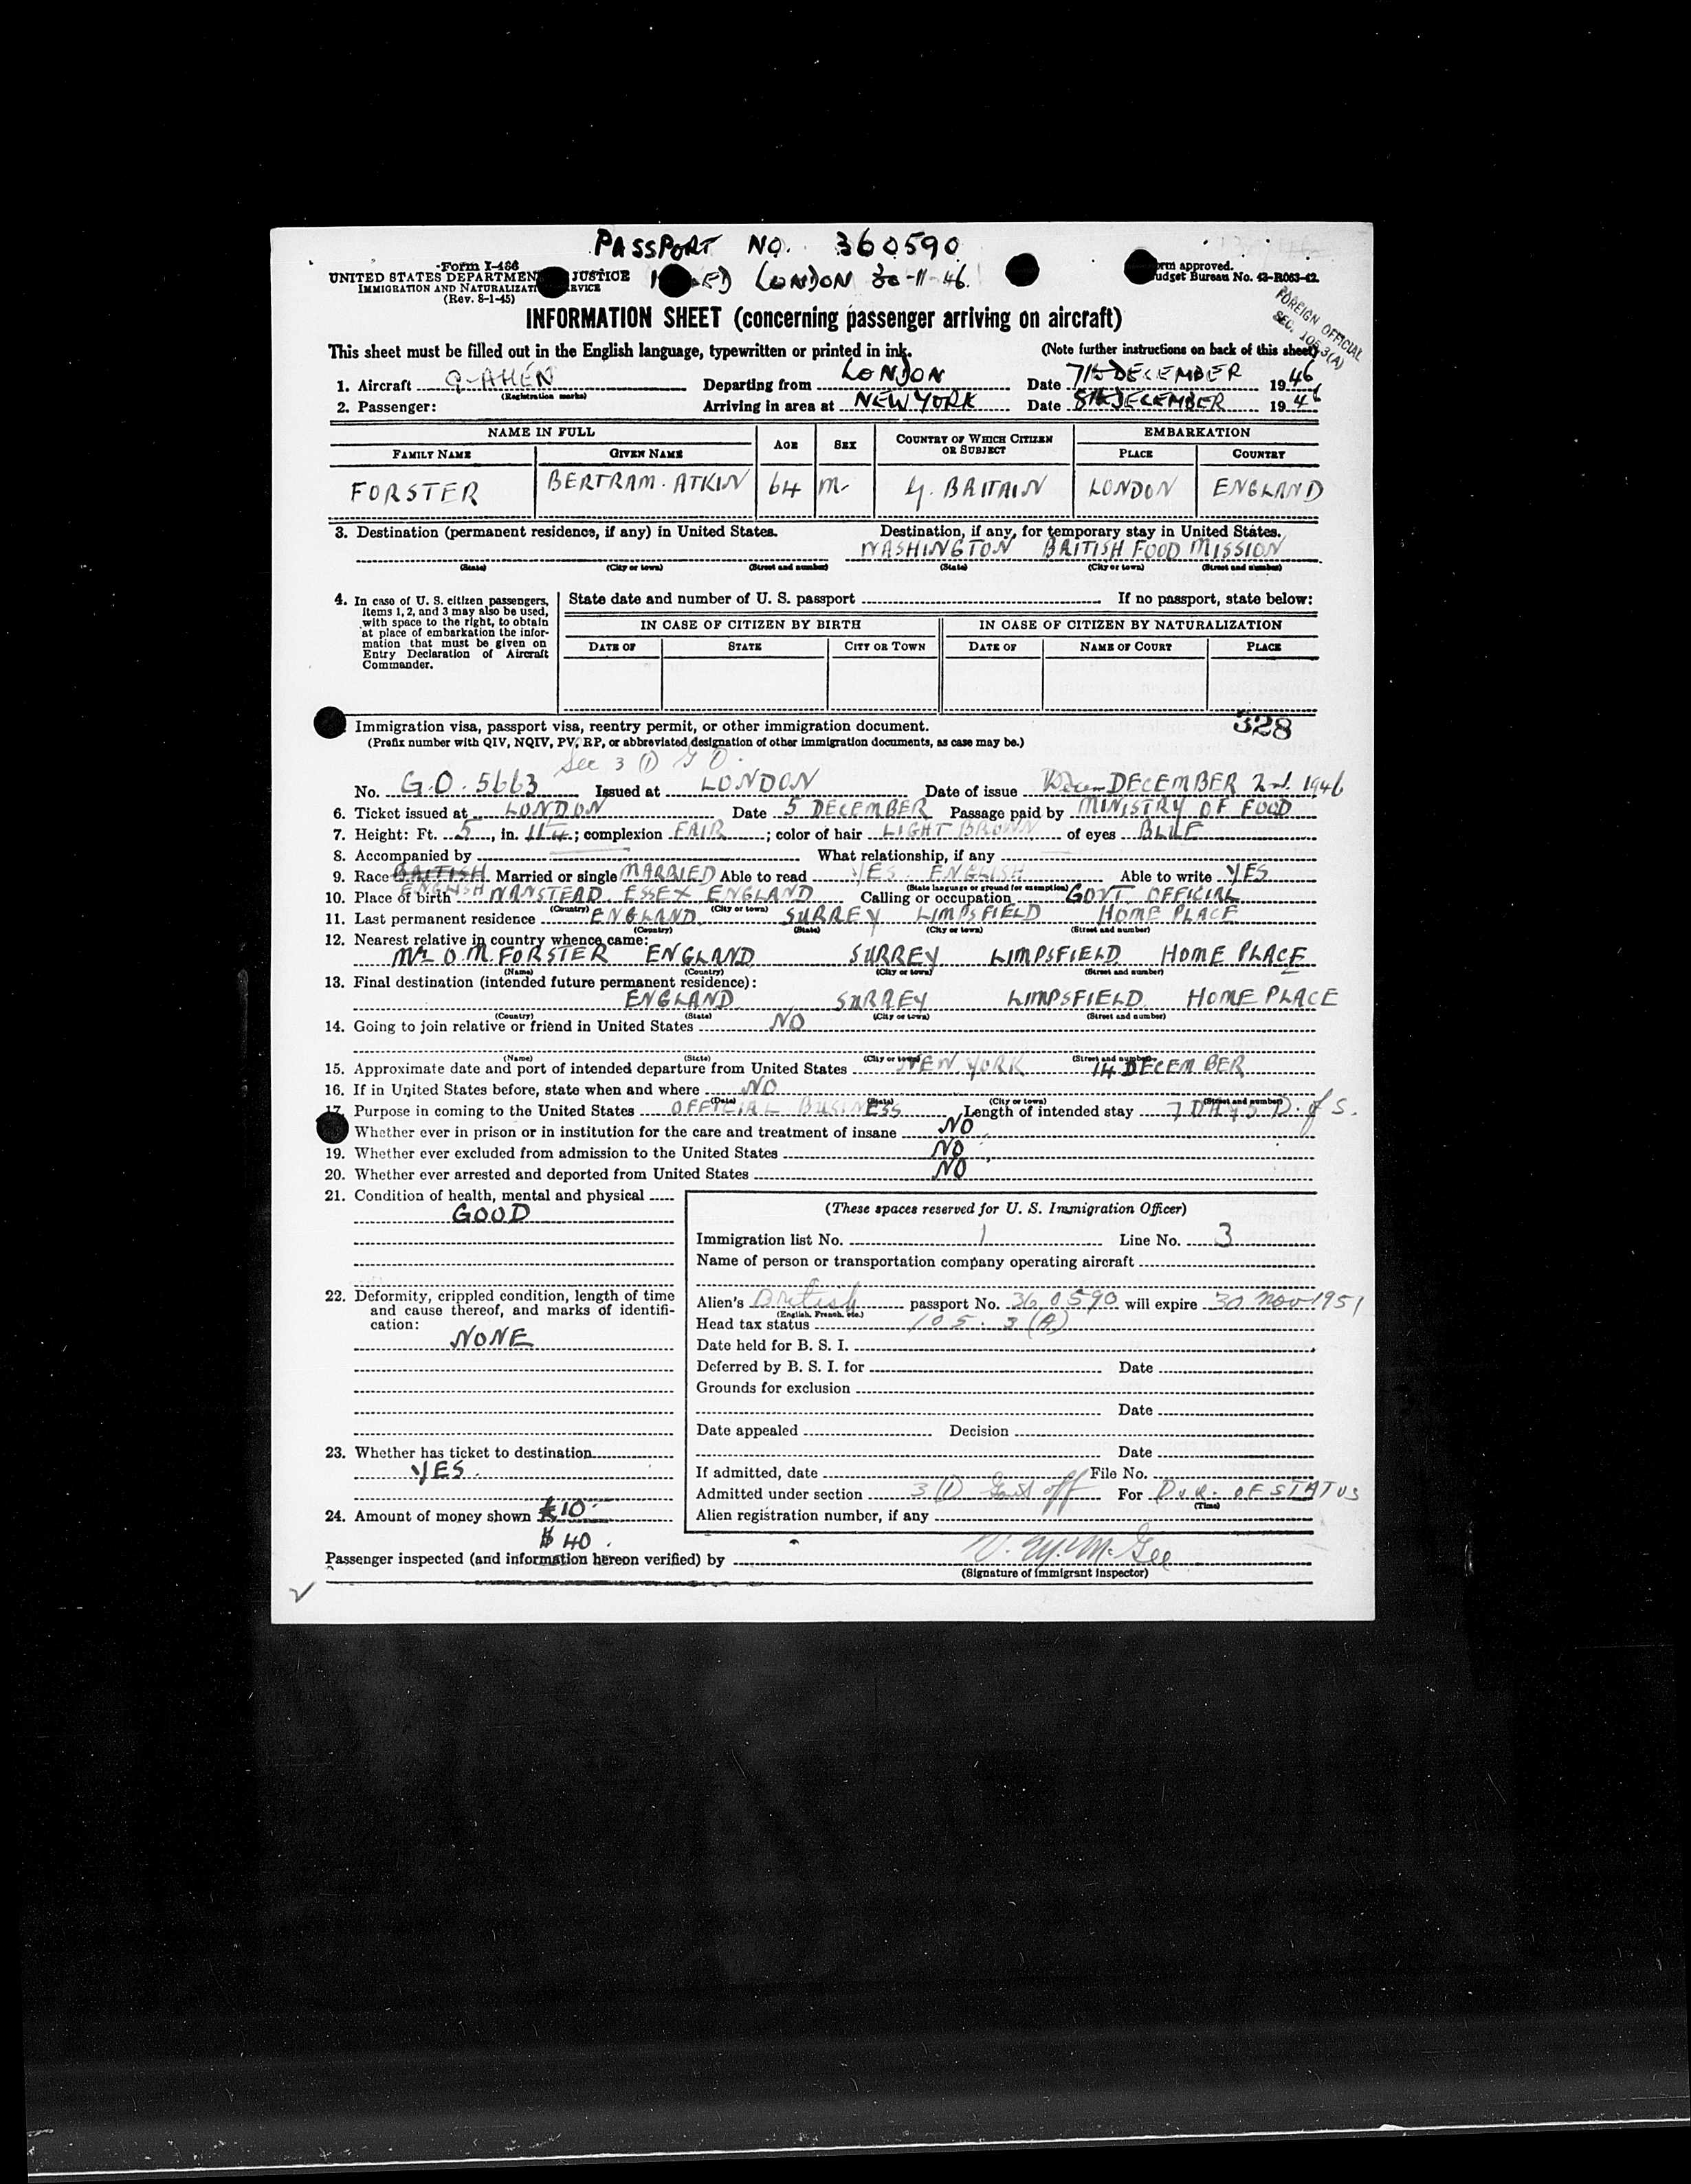 PASSPORT NO. 360590
Form I-466
UNITED STATES DEPARTMENT JUSTICE ED LONDON 30-11-46.
IMMIGRATION AND NATURALIZATI RVICE
(Rev. 8-1-45)
orm approved.
udget Bureau No. 43-R063-42.
FOREIGN OFFICIAL
SEC. 105.3(A)
INFORMATION SHEET (concerning passenger arriving on aircraft)
This sheet must be filled out in the English language, typewritten or printed in ink. (Note further instructions on back of this sheet)
1. Aircraft G-AHEN Departing from LONDON Date 7th DECEMBER 1946
(Registration marks)
2. Passenger: Arriving in area at NEW YORK Date 8th DECEMBER 1946
NAME IN FULL AGE SEX COUNTRY OF WHICH CITIZEN OR SUBJECT EMBARKATION
FAMILY NAME GIVEN NAME PLACE COUNTRY
FORSTER BERTRAM. ATKIN 64 M. G. BRITAIN LONDON ENGLAND
3. Destination (permanent residence, if any) in United States. Destination, if any, for temporary stay in United States.
WASHINGTON BRITISH FOOD MISSION
(State) (City or town) (Street and number) (State) (City or town) (Street and number)
4. In case of U. S. citizen passengers, items 1, 2, and 3 may also be used, with space to the right, to obtain at place of embarkation the information that must be given on Entry Declaration of Aircraft Commander.
State date and number of U. S. passport If no passport, state below:
IN CASE OF CITIZEN BY BIRTH IN CASE OF CITIZEN BY NATURALIZATION
DATE OF STATE CITY OR TOWN DATE OF NAME OF COURT PLACE
Immigration visa, passport visa, reentry permit, or other immigration document. 328
(Prefix number with QIV, NQIV, PV, RP, or abbreviated designation of other immigration documents, as case may be.)
Sec 3 (1) G O.
No. G.O. 5663 Issued at LONDON Date of issue DECEMBER 2nd. 1946
6. Ticket issued at LONDON Date 5 DECEMBER Passage paid by MINISTRY OF FOOD
7. Height: Ft. 5, in. 11¼; complexion FAIR; color of hair LIGHT BROWN of eyes BLUE
8. Accompanied by What relationship, if any
9. Race BRITISH Married or single MARRIED Able to read YES. ENGLISH Able to write YES
ENGLISH (State language or ground for exemption)
10. Place of birth WANSTEAD. ESSEX ENGLAND Calling or occupation GOVT. OFFICIAL
(Country) (City or town)
11. Last permanent residence ENGLAND SURREY LIMPSFIELD HOME PLACE
(Country) (State) (City or town) (Street and number)
12. Nearest relative in country whence came:
MRS O M FORSTER ENGLAND SURREY LIMPSFIELD HOME PLACE
(Name) (Country) (City or town) (Street and number)
13. Final destination (intended future permanent residence):
ENGLAND SURREY LIMPSFIELD HOME PLACE
(Country) (State) (City or town) (Street and number)
14. Going to join relative or friend in United States NO
(Name) (State) (City or town) (Street and number)
15. Approximate date and port of intended departure from United States NEW YORK 14 DECEMBER
16. If in United States before, state when and where NO
(Date) (State) (City or town) (Street and number)
17. Purpose in coming to the United States OFFICIAL BUSINESS Length of intended stay 7 DAYS D. of S.
Whether ever in prison or in institution for the care and treatment of insane NO
19. Whether ever excluded from admission to the United States NO
20. Whether ever arrested and deported from United States NO
21. Condition of health, mental and physical
GOOD
22. Deformity, crippled condition, length of time and cause thereof, and marks of identification:
NONE
23. Whether has ticket to destination
YES.
24. Amount of money shown £10
$ 40.
(These spaces reserved for U. S. Immigration Officer)
Immigration list No. 1 Line No. 3
Name of person or transportation company operating aircraft
Alien's British passport No. 360590 will expire 30 Nov 1951
(English, French, etc.)
Head tax status 105.3(A)
Date held for B. S. I.
Deferred by B. S. I. for Date
Grounds for exclusion
Date
Date appealed Decision
Date
If admitted, date File No.
Admitted under section 3(1) Govt off For Dur. OF STATUS
(Time)
Alien registration number, if any
Passenger inspected (and information hereon verified) by
(Signature of immigrant inspector)